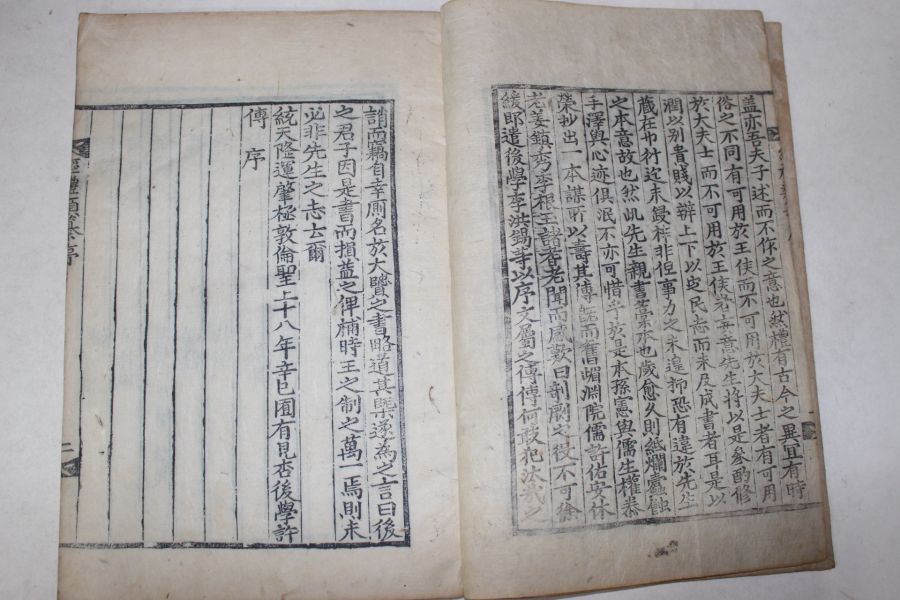 盖亦吾夫子述而不作之意也然禮有古今之異宜有時
俗之不同有可用於王侯而不可用於大夫士者有可用
於大夫士而不可用於王侯者妄意先生將以是參酌修
潤以別貴賤以辨上下以定民志而未及成書者耳是以
藏在巾衍迄未鋟梓非但事力之未遑抑恐有違於先生
之本意故也然此先生親書藁本也歲愈久則紙爛蠹蝕
手澤與心迹俱泯不亦可惜乎於是本孫憲與儒生權恭
榮抄出一本謀所以壽其傳而舊嵋淵院儒許佑安休
老姜鎮李根玉諸耆老聞而感歎曰剞劂之役不可徐
緩即遣後學李洪錫等以序文屬之傳傳何敢犯法我之
誚而竊自幸厠名於大賢之書略道其槩遂為之言曰後
之君子因是書而損益之俾補時王之制之萬一焉則未
必非先生之志云爾
統天隆運肇極敦倫聖上十八年辛巳圉有見杏後學許
傳序
經禮類纂序
二